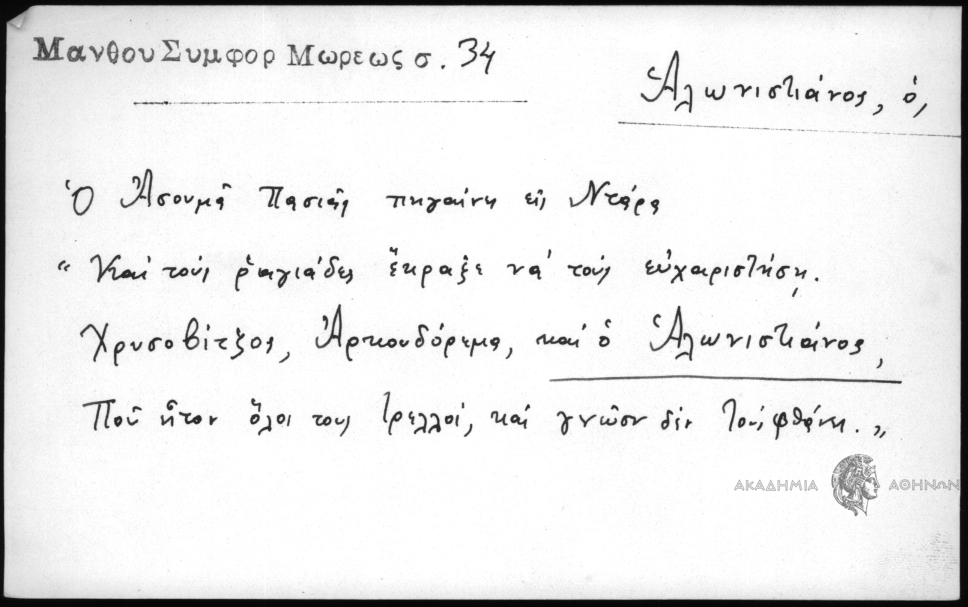 Μανθου Συμφορ Μωρεως σ. 34
Ἀλωνιστιάνος, ὁ,
Ὁ Ἀσουμᾶ Πασιᾶς πηγαίνη εἰς Ντάρα
"Καὶ τοὺς ῥαγιάδες ἔκραξε νά τοὺς εὐχαριστήσῃ.
Χρυσοβίτζος, Ἀρκουδόρεμα, καὶ ὁ Ἀλωνιστιάνος,
Ποῦ ἦτον ὅλοι τους τρελλοί, καὶ γνῶσιν δὲν τοὺς φθάνη."
ΑΚΑΔΗΜΙΑ ΑΘΗΝΩΝ